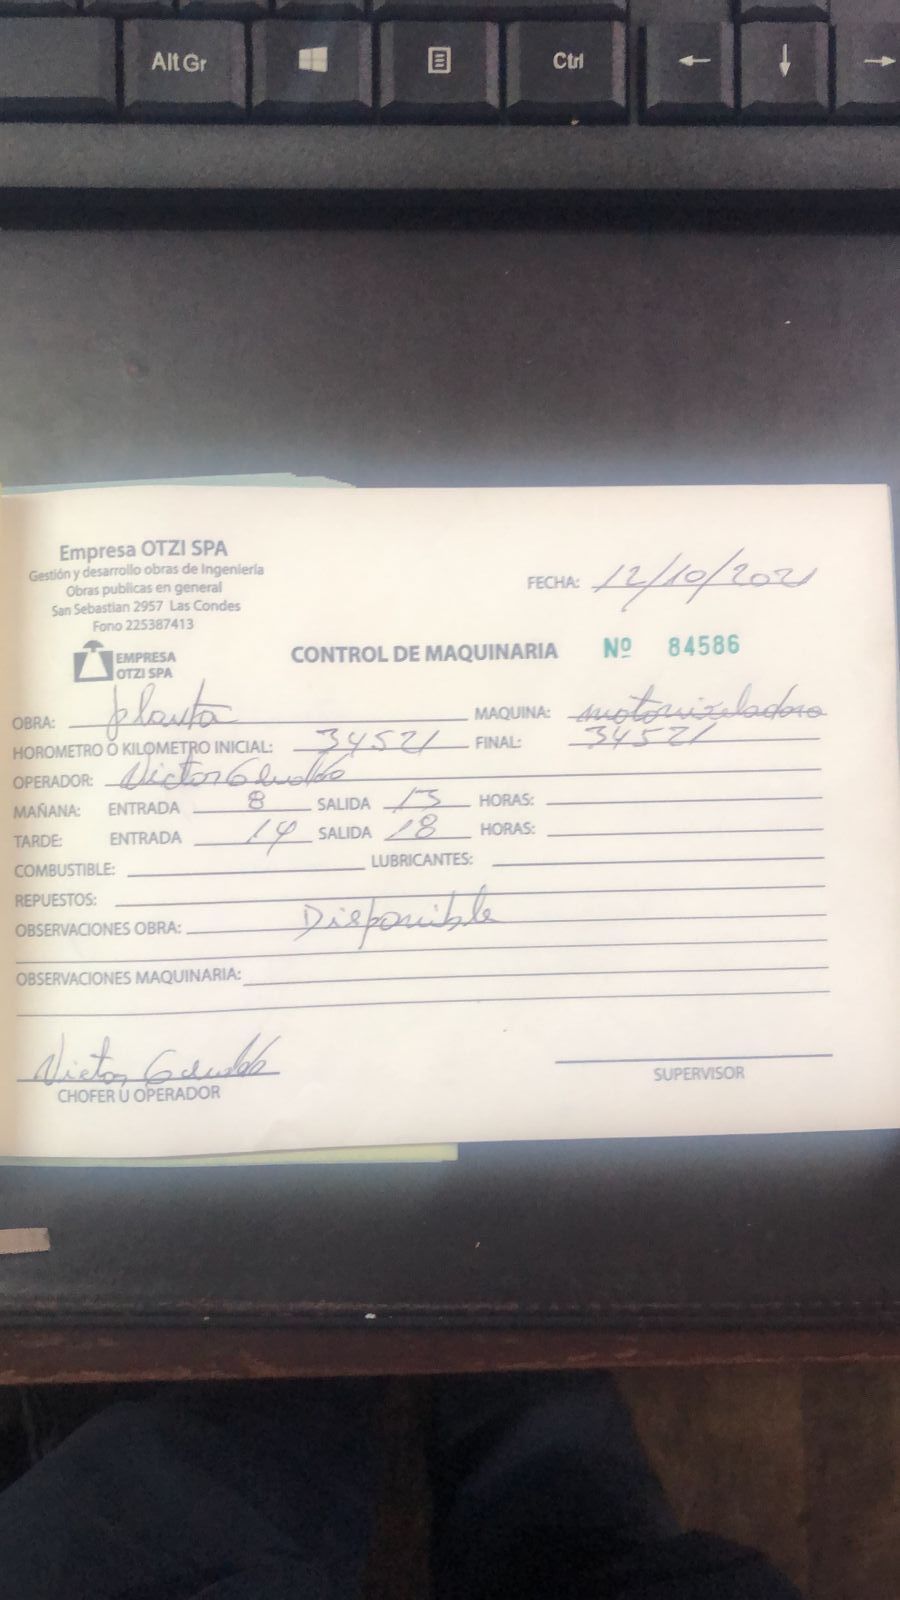 Alt Gr
Ctrl
← ↓ →
Empresa OTZI SPA
Gestión y desarrollo obras de Ingeniería
Obras publicas en general
San Sebastian 2957 Las Condes
Fono 225387413
FECHA: 12/10/2021
EMPRESA
OTZI SPA
CONTROL DE MAQUINARIA Nº 84586
OBRA: planta MAQUINA: motoniveladora
HOROMETRO O KILOMETRO INICIAL: 34521 FINAL: 34521
OPERADOR: Victor
MAÑANA: ENTRADA 8 SALIDA 13 HORAS:
TARDE: ENTRADA 14 SALIDA 18 HORAS:
COMBUSTIBLE: LUBRICANTES:
REPUESTOS:
OBSERVACIONES OBRA: Disponible
OBSERVACIONES MAQUINARIA:
Victor
CHOFER U OPERADOR
SUPERVISOR